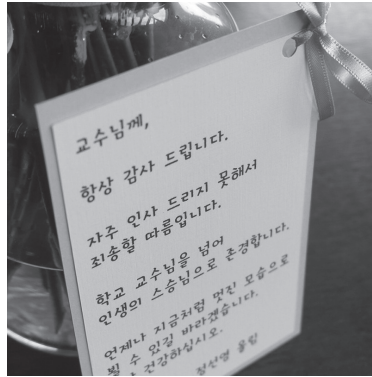 교수님께,
항상 감사 드립니다.
자주 인사 드리지 못해서
죄송할 따름입니다.
학교 교수님을 넘어
인생의 스승님으로 존경합니다.
언제나 지금처럼 멋진 모습으로
뵐 수 있길 바라겠습니다.
건강하십시오.
정선영 올림